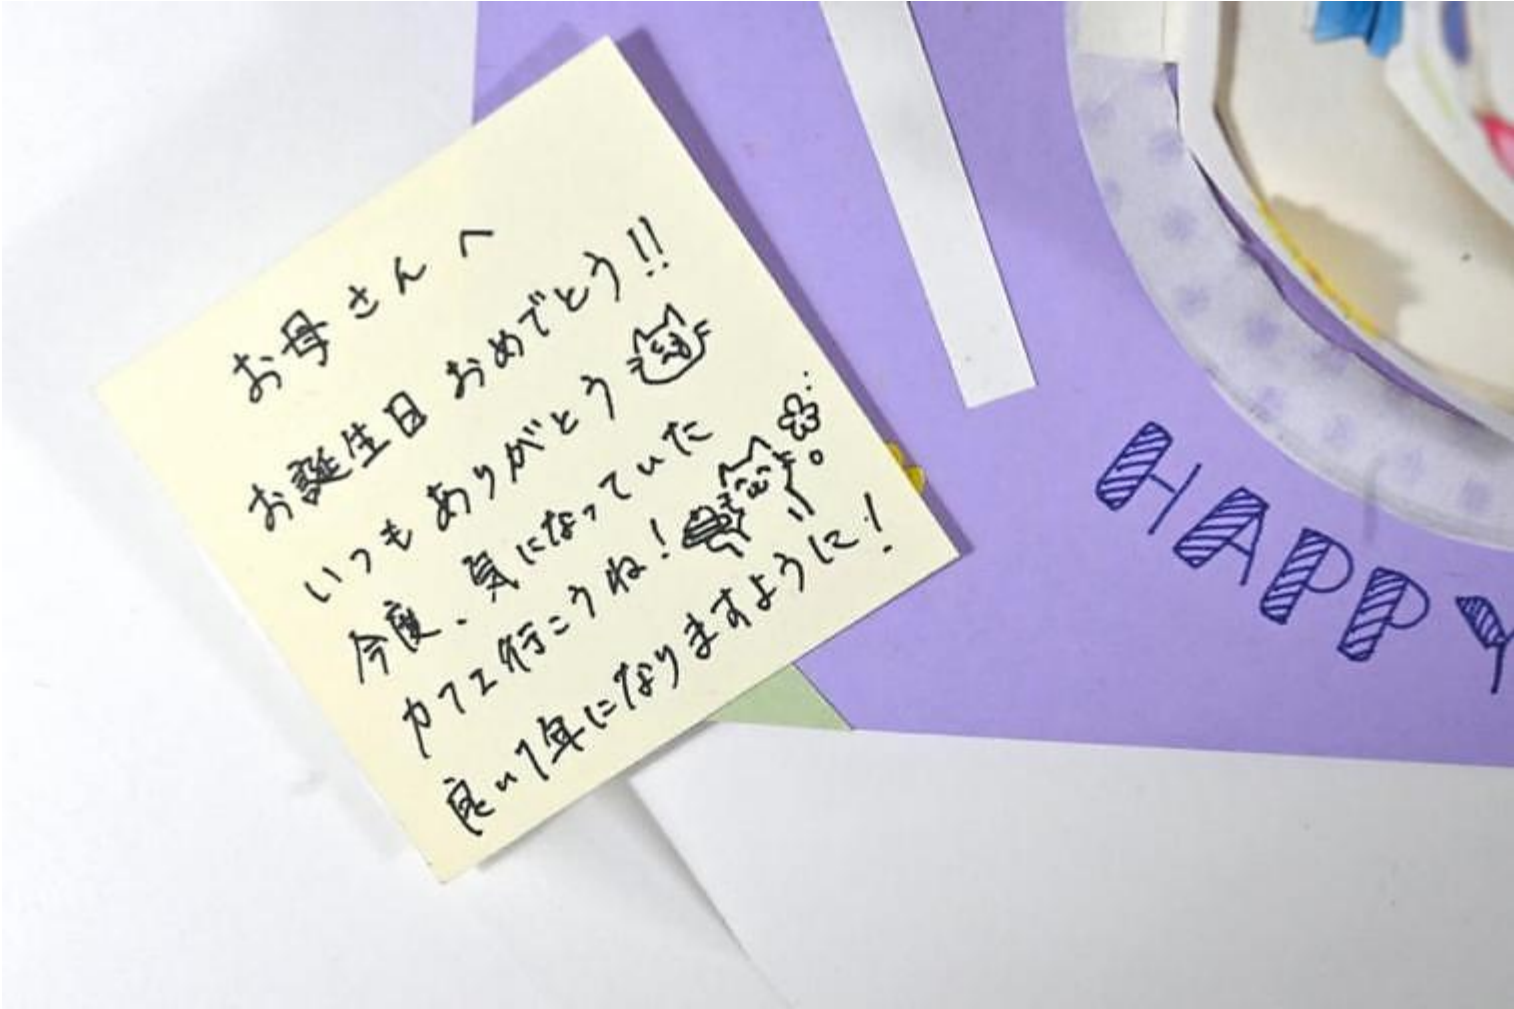 お母さんへ
お誕生日おめでとう!!
いつもありがとう
今度、気になっていた
カフェ行こうね!
良い1年になりますように!
HAPPY